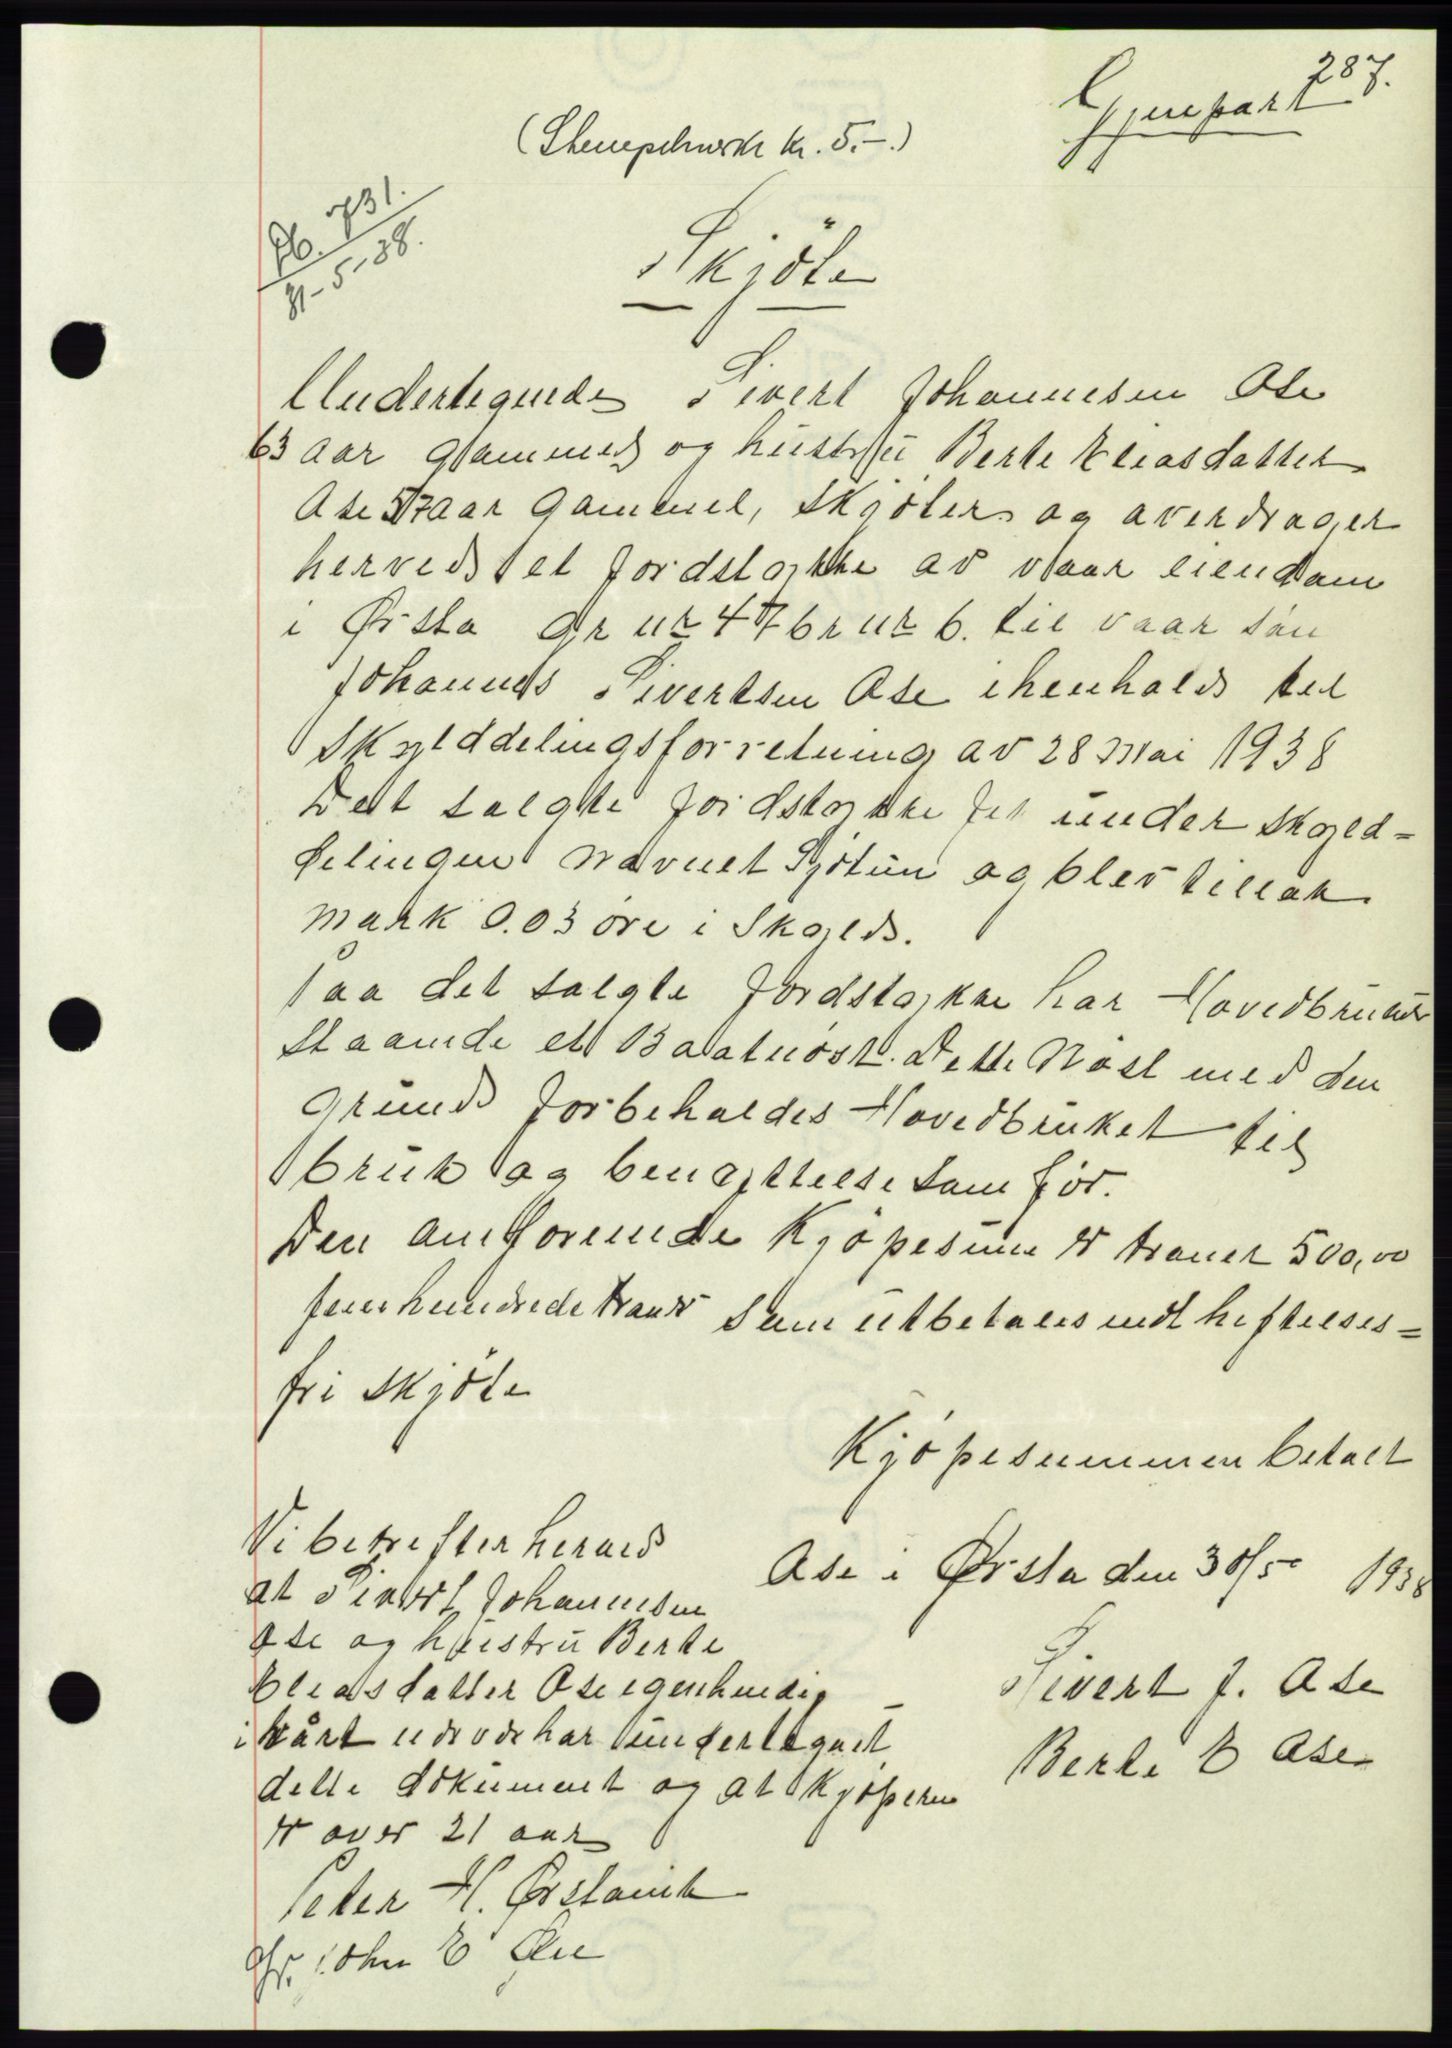 287.
Gjenpart
(Stempelmerke kr. 5.-.)
Db. 731.
31-5-38.
Skjöte
Undertegnede Sivert Johannesen Ose
63 aar gammel og hustru Berte Eliasdatter
Ose 57 aar gammel, skjöter og averdrager
herved et jordstykke av vaar eiendom
i Ørsta gr nr 47 br nr 6. til vaar sön
Johannes Sivertsen Ose ihenhold til
skylddelingsforretning av 28 Mai 1938
Det salgte jordstykke fek under skyld=
delingen navnet Sjötun og blev tillat
mark 0.03 öre i Skyld.
Paa det solgte Jordstykke har Hovedbruket
staaende et Baatnöst. Dette Nöst med den
grund forbeholdes Hovedbruket til
bruk og benyttelse som för.
Den omforenede Kjöpesum er kroner 500,00
femhundrede kroner som utbetales mot heftelses=
fri skjöte
Kjöpesummen betalt
Ose i Ørsta den 30/5 1938
Sivert J. Ose
Berte E Ose
Vi bekrefter herved
at Sivert Johannesen
Ose og hustru Berte
Eliasdatter Ose egenhendig
i vårt nærvær har undertegnet
dette dokument og at kjöperen
er over 21 aar
Peter H. Ørstavik
John E Øie